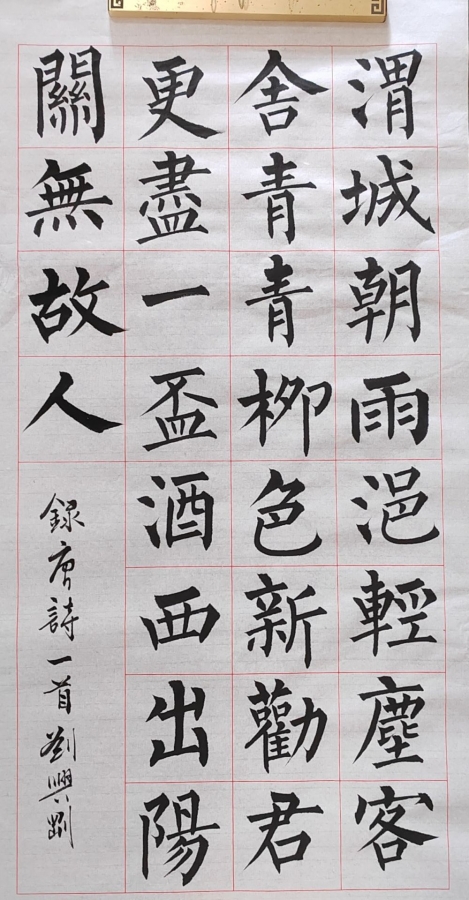 渭城朝雨浥輕塵客
舍青青柳色新勸君
更盡一盃酒西出陽
關無故人
録唐詩一首劉興